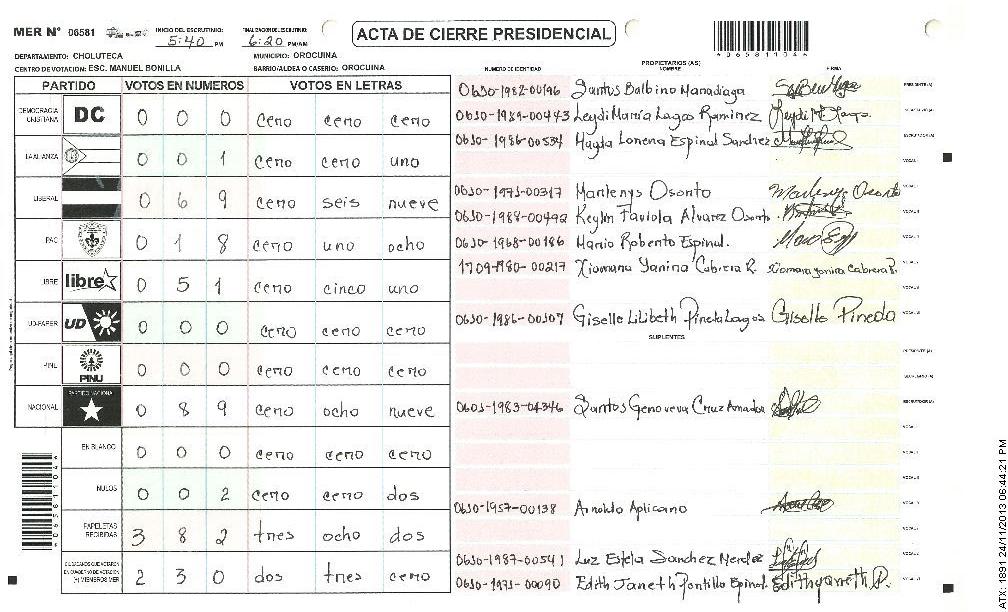 MER Nº 06581 INICIO DEL ESCRUTINIO: 5:40 PM FINALIZACION DEL ESCRUTINIO: 6:20 PM/AM ACTA DE CIERRE PRESIDENCIAL
DEPARTAMENTO: CHOLUTECA MUNICIPIO: OROCUINA
CENTRO DE VOTACION: ESC. MANUEL BONILLA BARRIO/ALDEA O CASERIO: OROCUINA
PARTIDO VOTOS EN NUMEROS VOTOS EN LETRAS
DEMOCRACIA CRISTIANA DC 0 0 0 cero cero cero
LA ALIANZA 0 0 1 cero cero uno
LIBERAL 0 6 9 cero seis nueve
PAC 0 1 8 cero uno ocho
LIBRE libre 0 5 1 cero cinco uno
UD-FAPER UD 0 0 0 cero cero cero
PINU PINU 0 0 0 cero cero cero
NACIONAL PARTIDO NACIONAL 0 8 9 cero ocho nueve
EN BLANCO 0 0 0 cero cero cero
NULOS 0 0 2 cero cero dos
PAPELETAS RECIBIDAS 3 8 2 tres ocho dos
CIUDADANOS QUE VOTARON EN CUADERNO DE VOTACION (+) MIEMBROS MER 2 3 0 dos tres cero
4065811046
PROPIETARIOS (AS)
NUMERO DE IDENTIDAD NOMBRE FIRMA
0610-1982-00196 Santos Balbino Maradiaga PRESIDENTE (A)
0610-1989-00443 Leydi María Lagos Ramirez
0610-1986-00534 Hayda Lorena Espinal Sanchez ESCRUTADOR (A)
VOCAL I
0610-1973-00317 Marlenys Osorto Marlenys Osorto
0610-1988-00492 Keylin Faviola Alvarez Osorto
0610-1968-00186 Mario Roberto Espinal.
1709-1980-00217 Xiomara Yanina Cabrera R. Xiomara Yanina Cabrera R.
0610-1986-00107 Giselle Lilibeth Pineda Lagos Giselle Pineda
SUPLENTES
PRESIDENTE (A)
SECRETARIO (A)
0601-1983-04346 Santos Genoveva Cruz Amador ESCRUTADOR (A)
0610-1957-00138 Arnoldo Aplicano
0610-1987-00541 Luz Estela Sanchez Mendez
0610-1971-00090 Edith Janeth Portillo Espinal Edith Yaneth P.
ATX: 1891 24/11/2013 06:44:21 PM